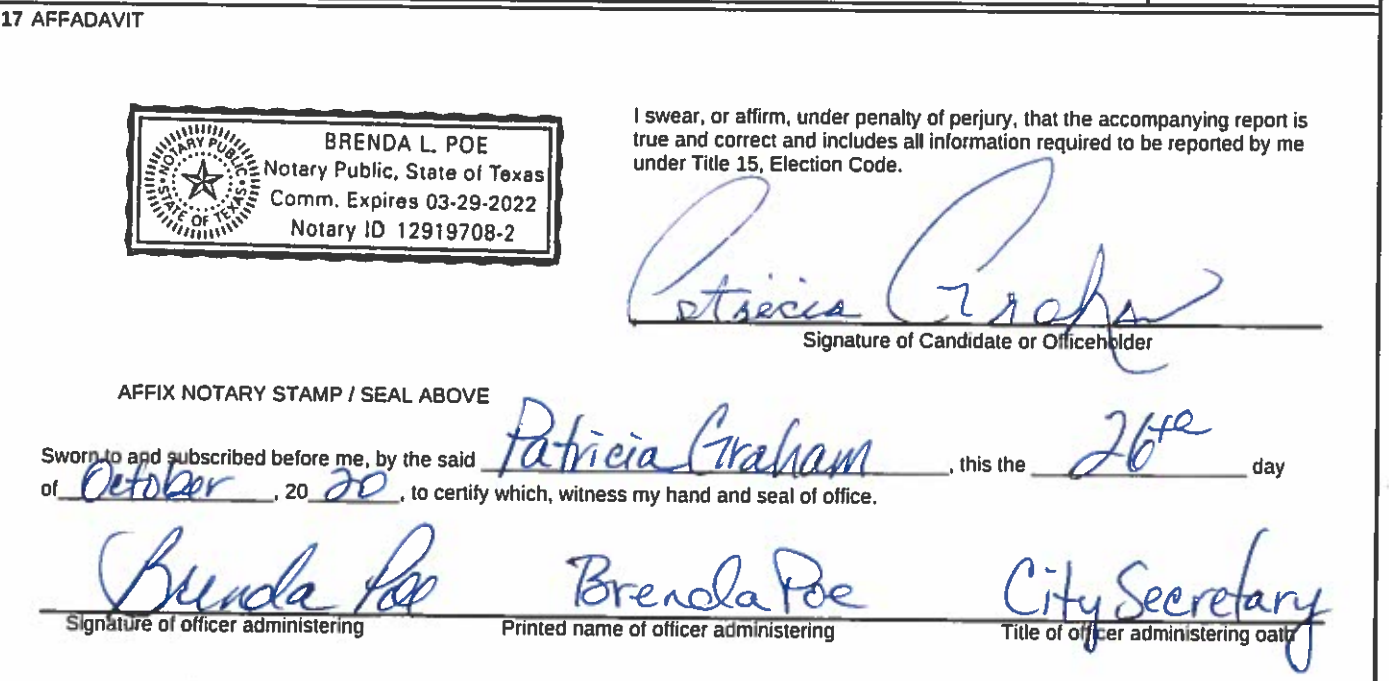 17 AFFADAVIT
BRENDA L. POE
Notary Public, State of Texas
Comm. Expires 03-29-2022
Notary ID 12919708-2
NOTARY PUBLIC
STATE OF TEXAS
I swear, or affirm, under penalty of perjury, that the accompanying report is
true and correct and includes all information required to be reported by me
under Title 15, Election Code.
Patricia Graham
Signature of Candidate or Officeholder
AFFIX NOTARY STAMP / SEAL ABOVE
Sworn to and subscribed before me, by the said Patricia Graham, this the 26th day
of October, 20 20, to certify which, witness my hand and seal of office.
Brenda Poe Brenda Poe City Secretary
Signature of officer administering Printed name of officer administering Title of officer administering oath